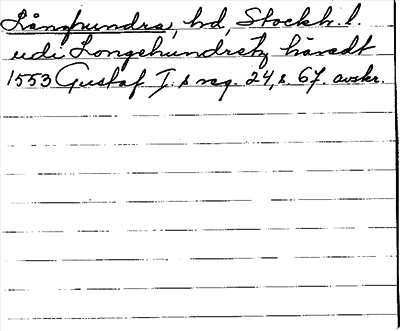 Långhundra, hd, Stockh. l.
udi Longehundretz häredt
1553 Gustaf I:s reg. 24, s. 67. avskr.